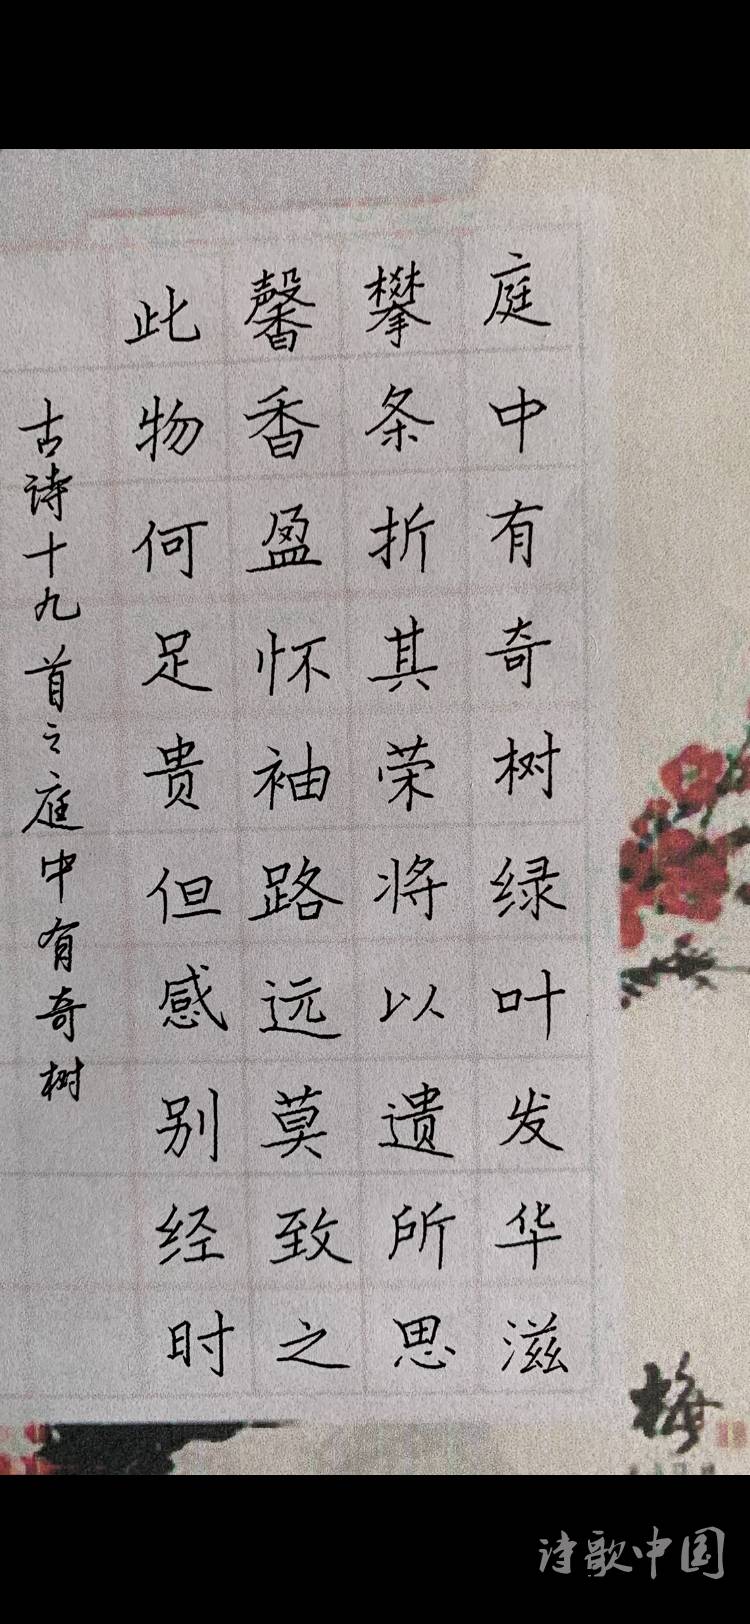 庭中有奇树绿叶发华滋
攀条折其荣将以遗所思
馨香盈怀袖路远莫致之
此物何足贵但感别经时
古诗十九首之庭中有奇树
梅
诗歌中国